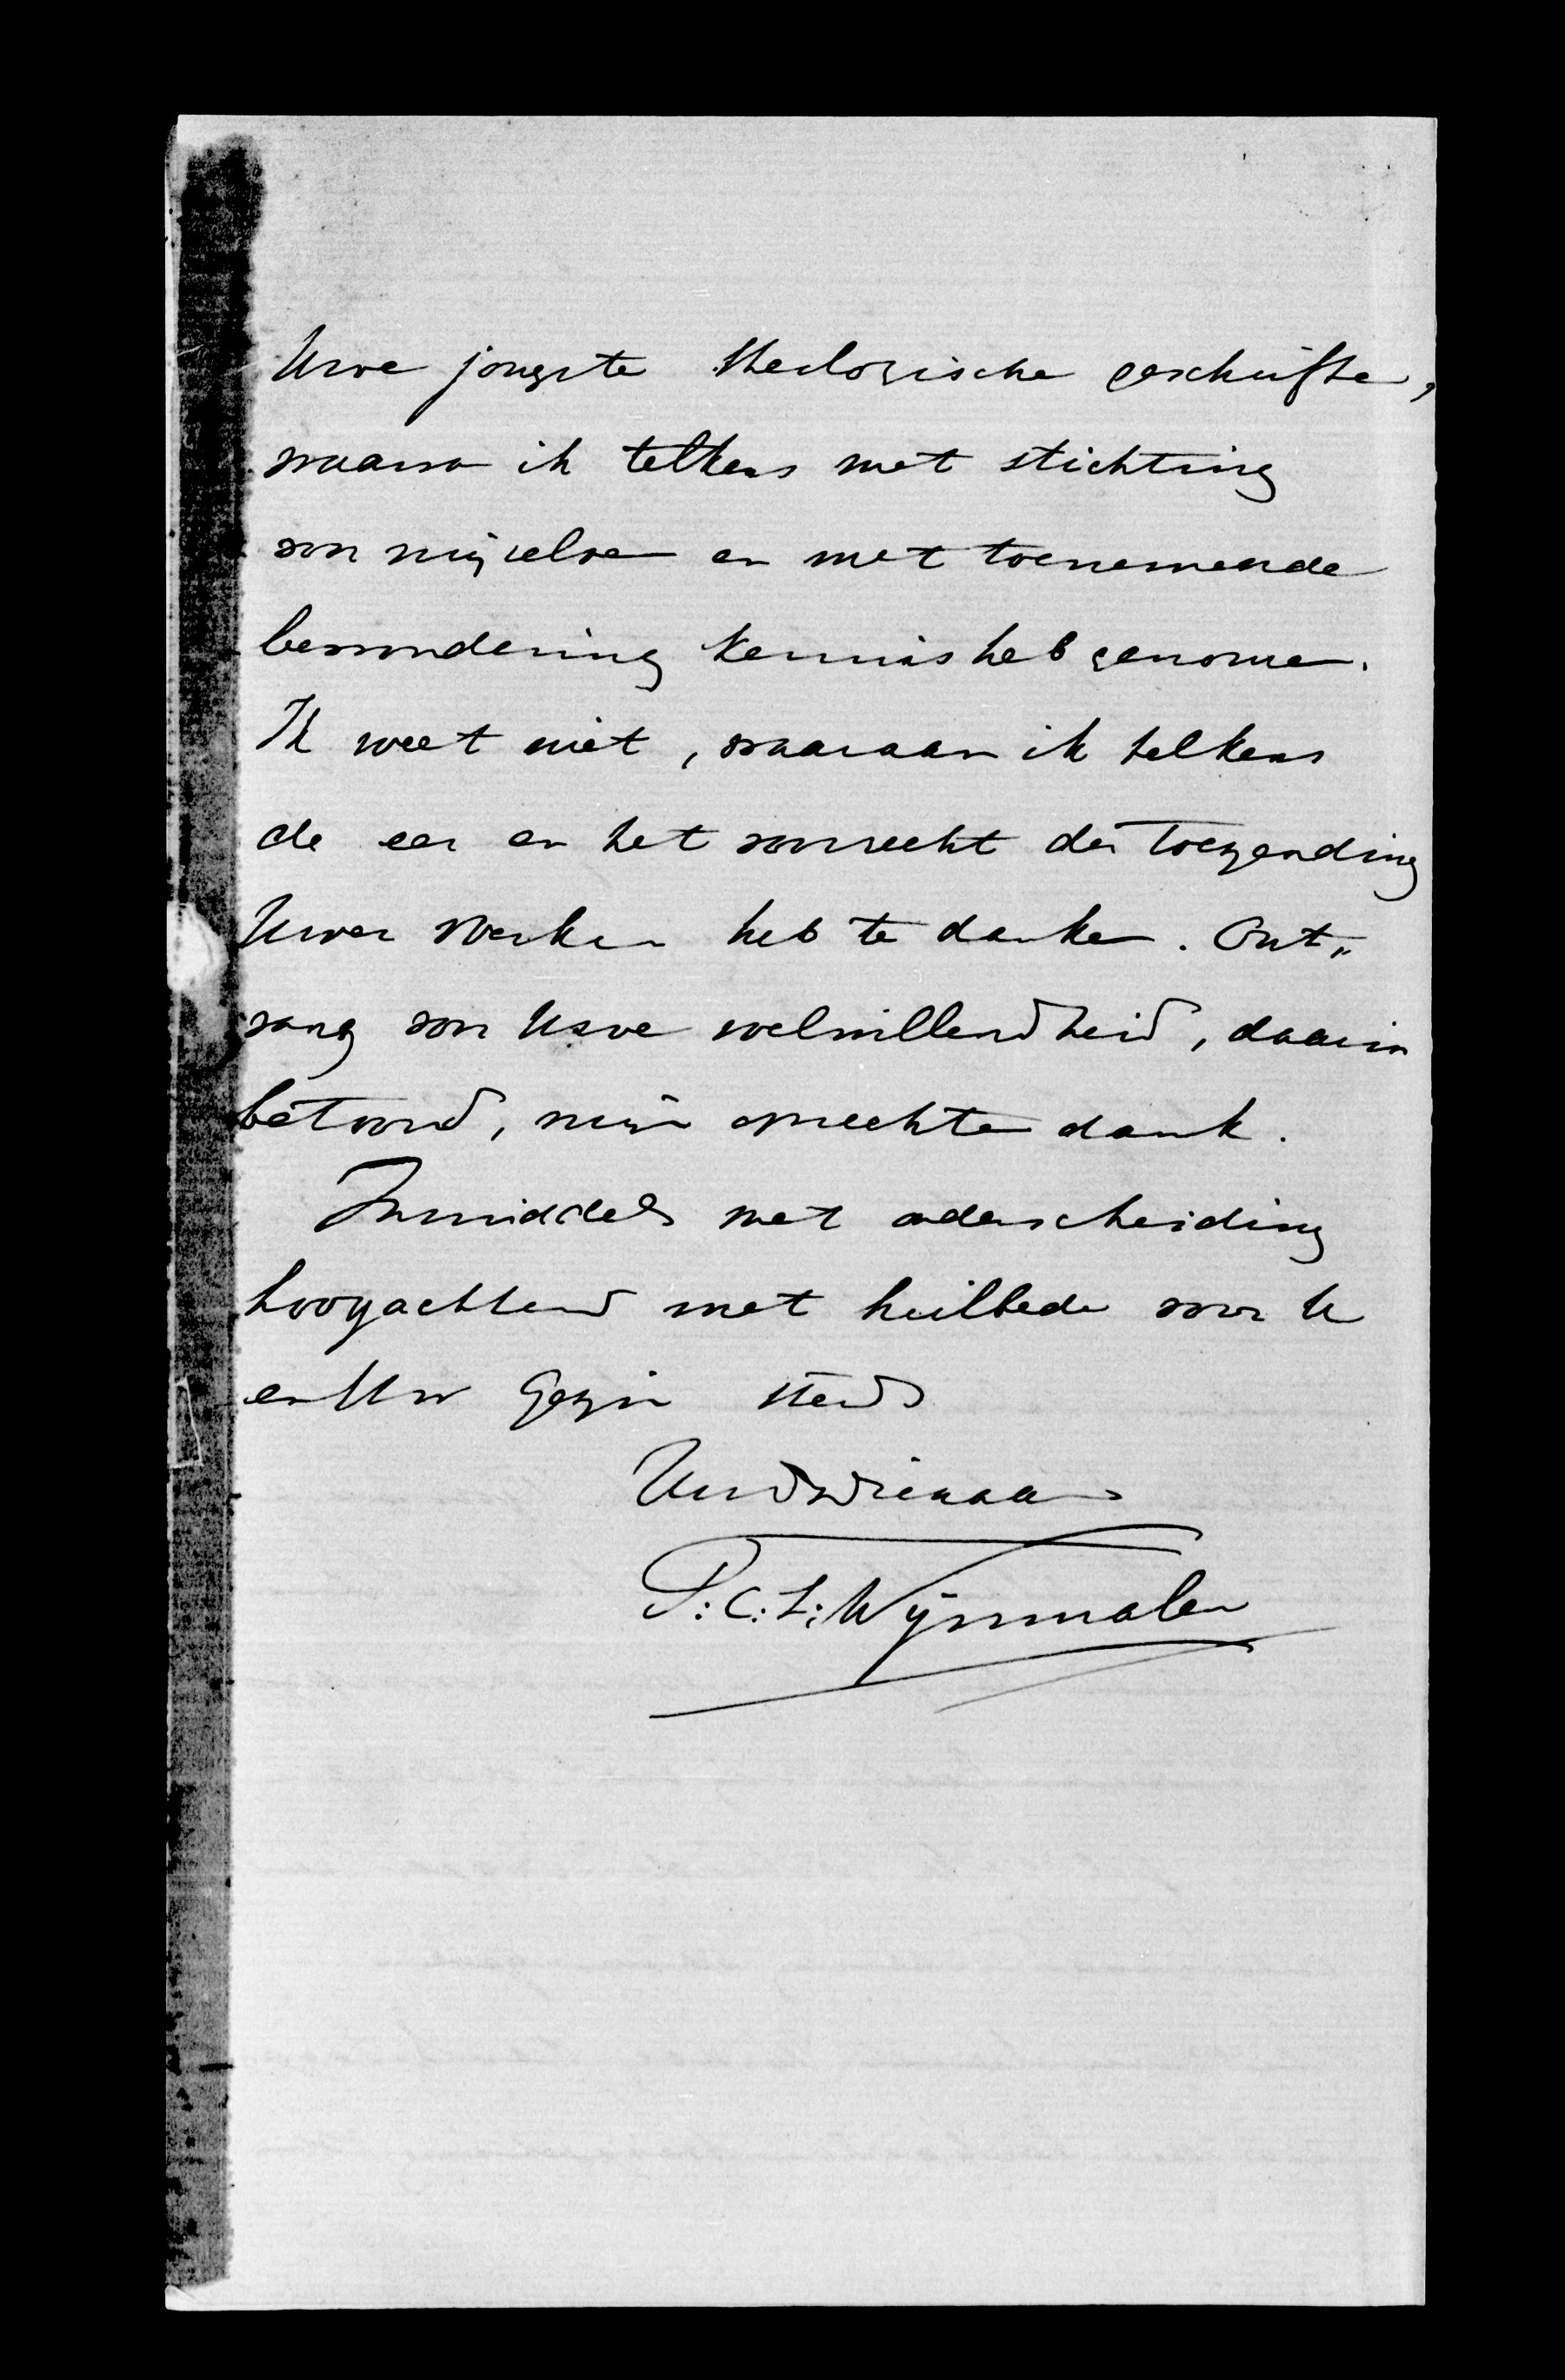 Uwe jongste theologische geschriften,
waarvan ik telkens met stichting
voor mijzelven en met toenemende
bewondering kennis heb genomen.
Ik weet niet, waaraan ik telkens
de eer en het voorrecht der toezending
Uwer werken heb te danken. Ont„
vang voor Uwe welwillendheid, daarin
betoond, mijn oprechten dank.
Inmiddels met onderscheiding
hoogachtend met heilbede voor U
en Uw gezin steeds
Uwdwdienaar
P.:C.:L:Wijnmalen